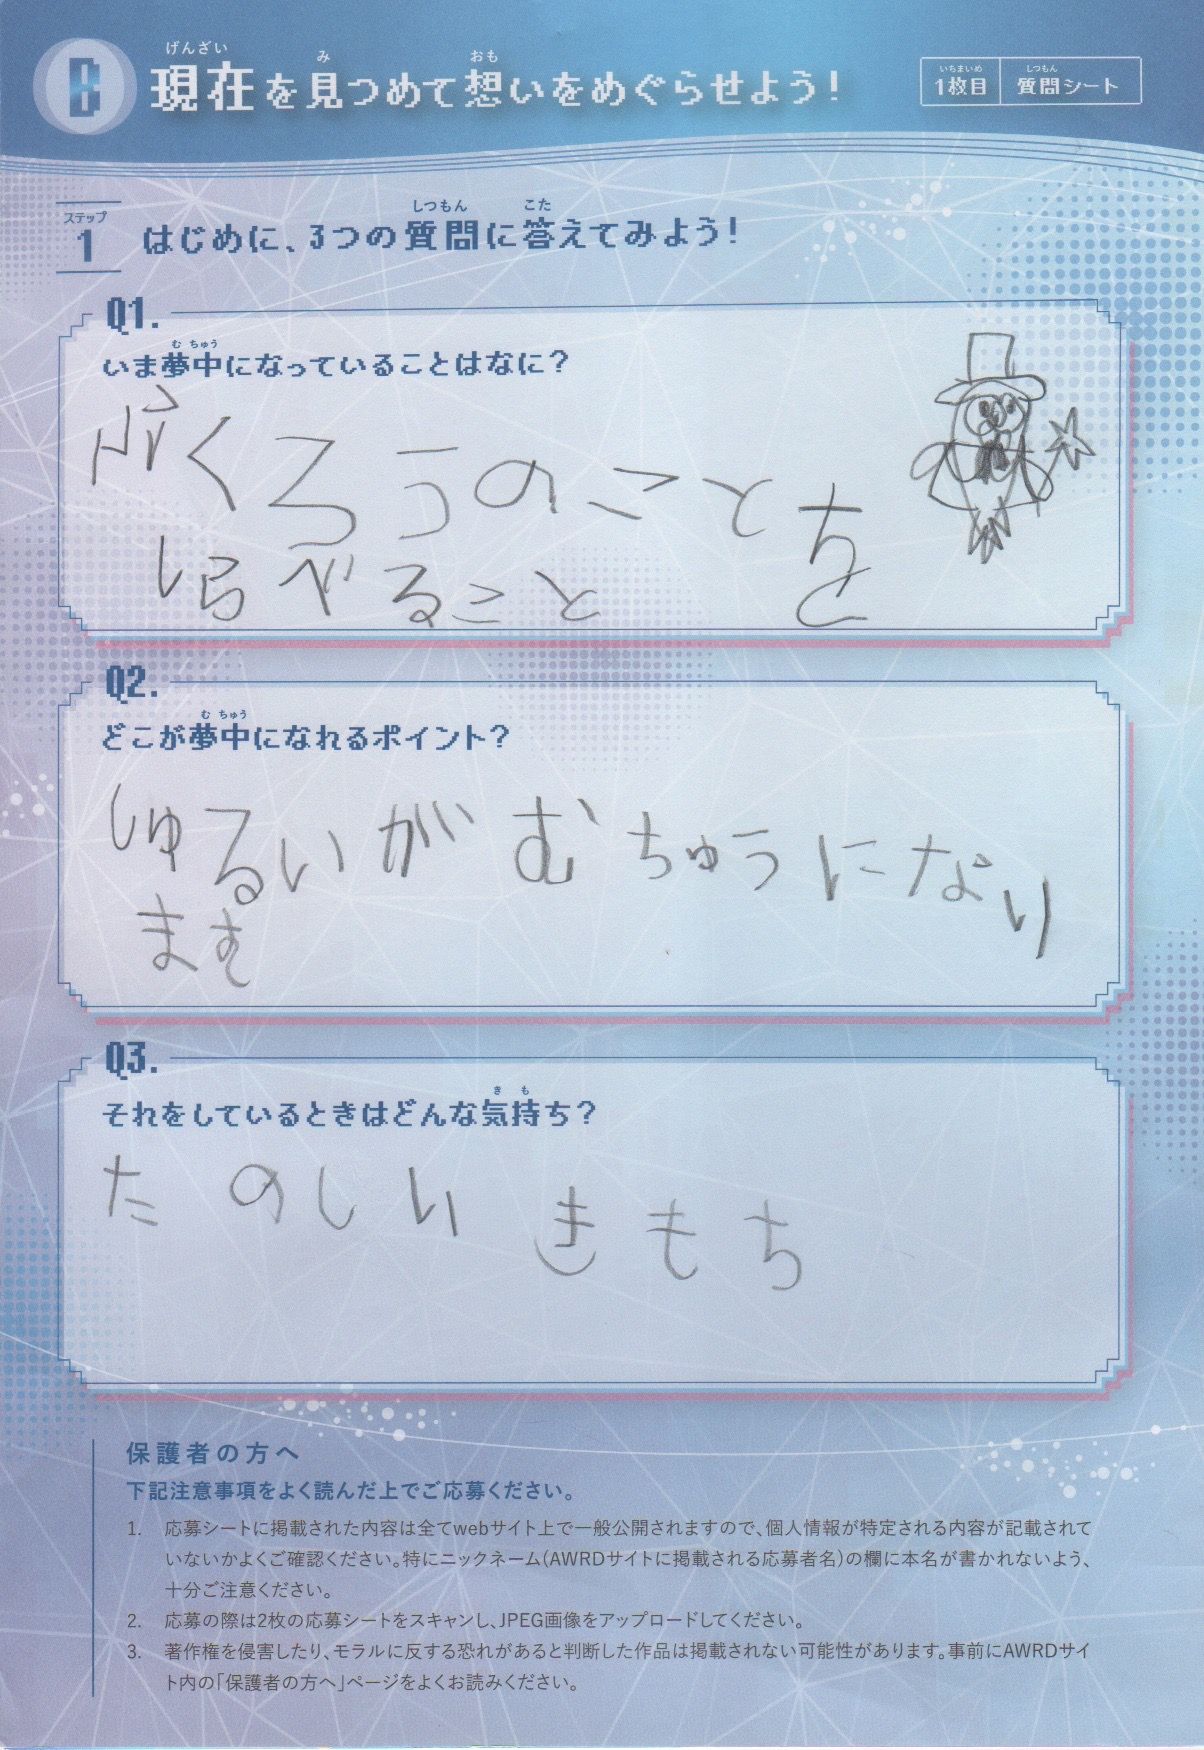 B
げんざい み おも
現在を見つめて想いをめぐらせよう!
いちまいめ しつもん
1枚目 質問シート
ステップ
1
しつもん こた
はじめに、3つの質問に答えてみよう!
Q1.
む ちゅう
いま夢中になっていることはなに?
ふくろうのことを
しらべること
Q2.
む ちゅう
どこが夢中になれるポイント?
しゅるいがむちゅうになり
ます
Q3.
き も
それをしているときはどんな気持ち?
たのしいきもち
保護者の方へ
下記注意事項をよく読んだ上でご応募ください。
1. 応募シートに掲載された内容は全てwebサイト上で一般公開されますので、個人情報が特定される内容が記載されて
いないかよくご確認ください。特にニックネーム(AWRDサイトに掲載される応募者名)の欄に本名が書かれないよう、
十分ご注意ください。
2. 応募の際は2枚の応募シートをスキャンし、JPEG画像をアップロードしてください。
3. 著作権を侵害したり、モラルに反する恐れがあると判断した作品は掲載されない可能性があります。事前にAWRDサイ
ト内の「保護者の方へ」ページをよくお読みください。